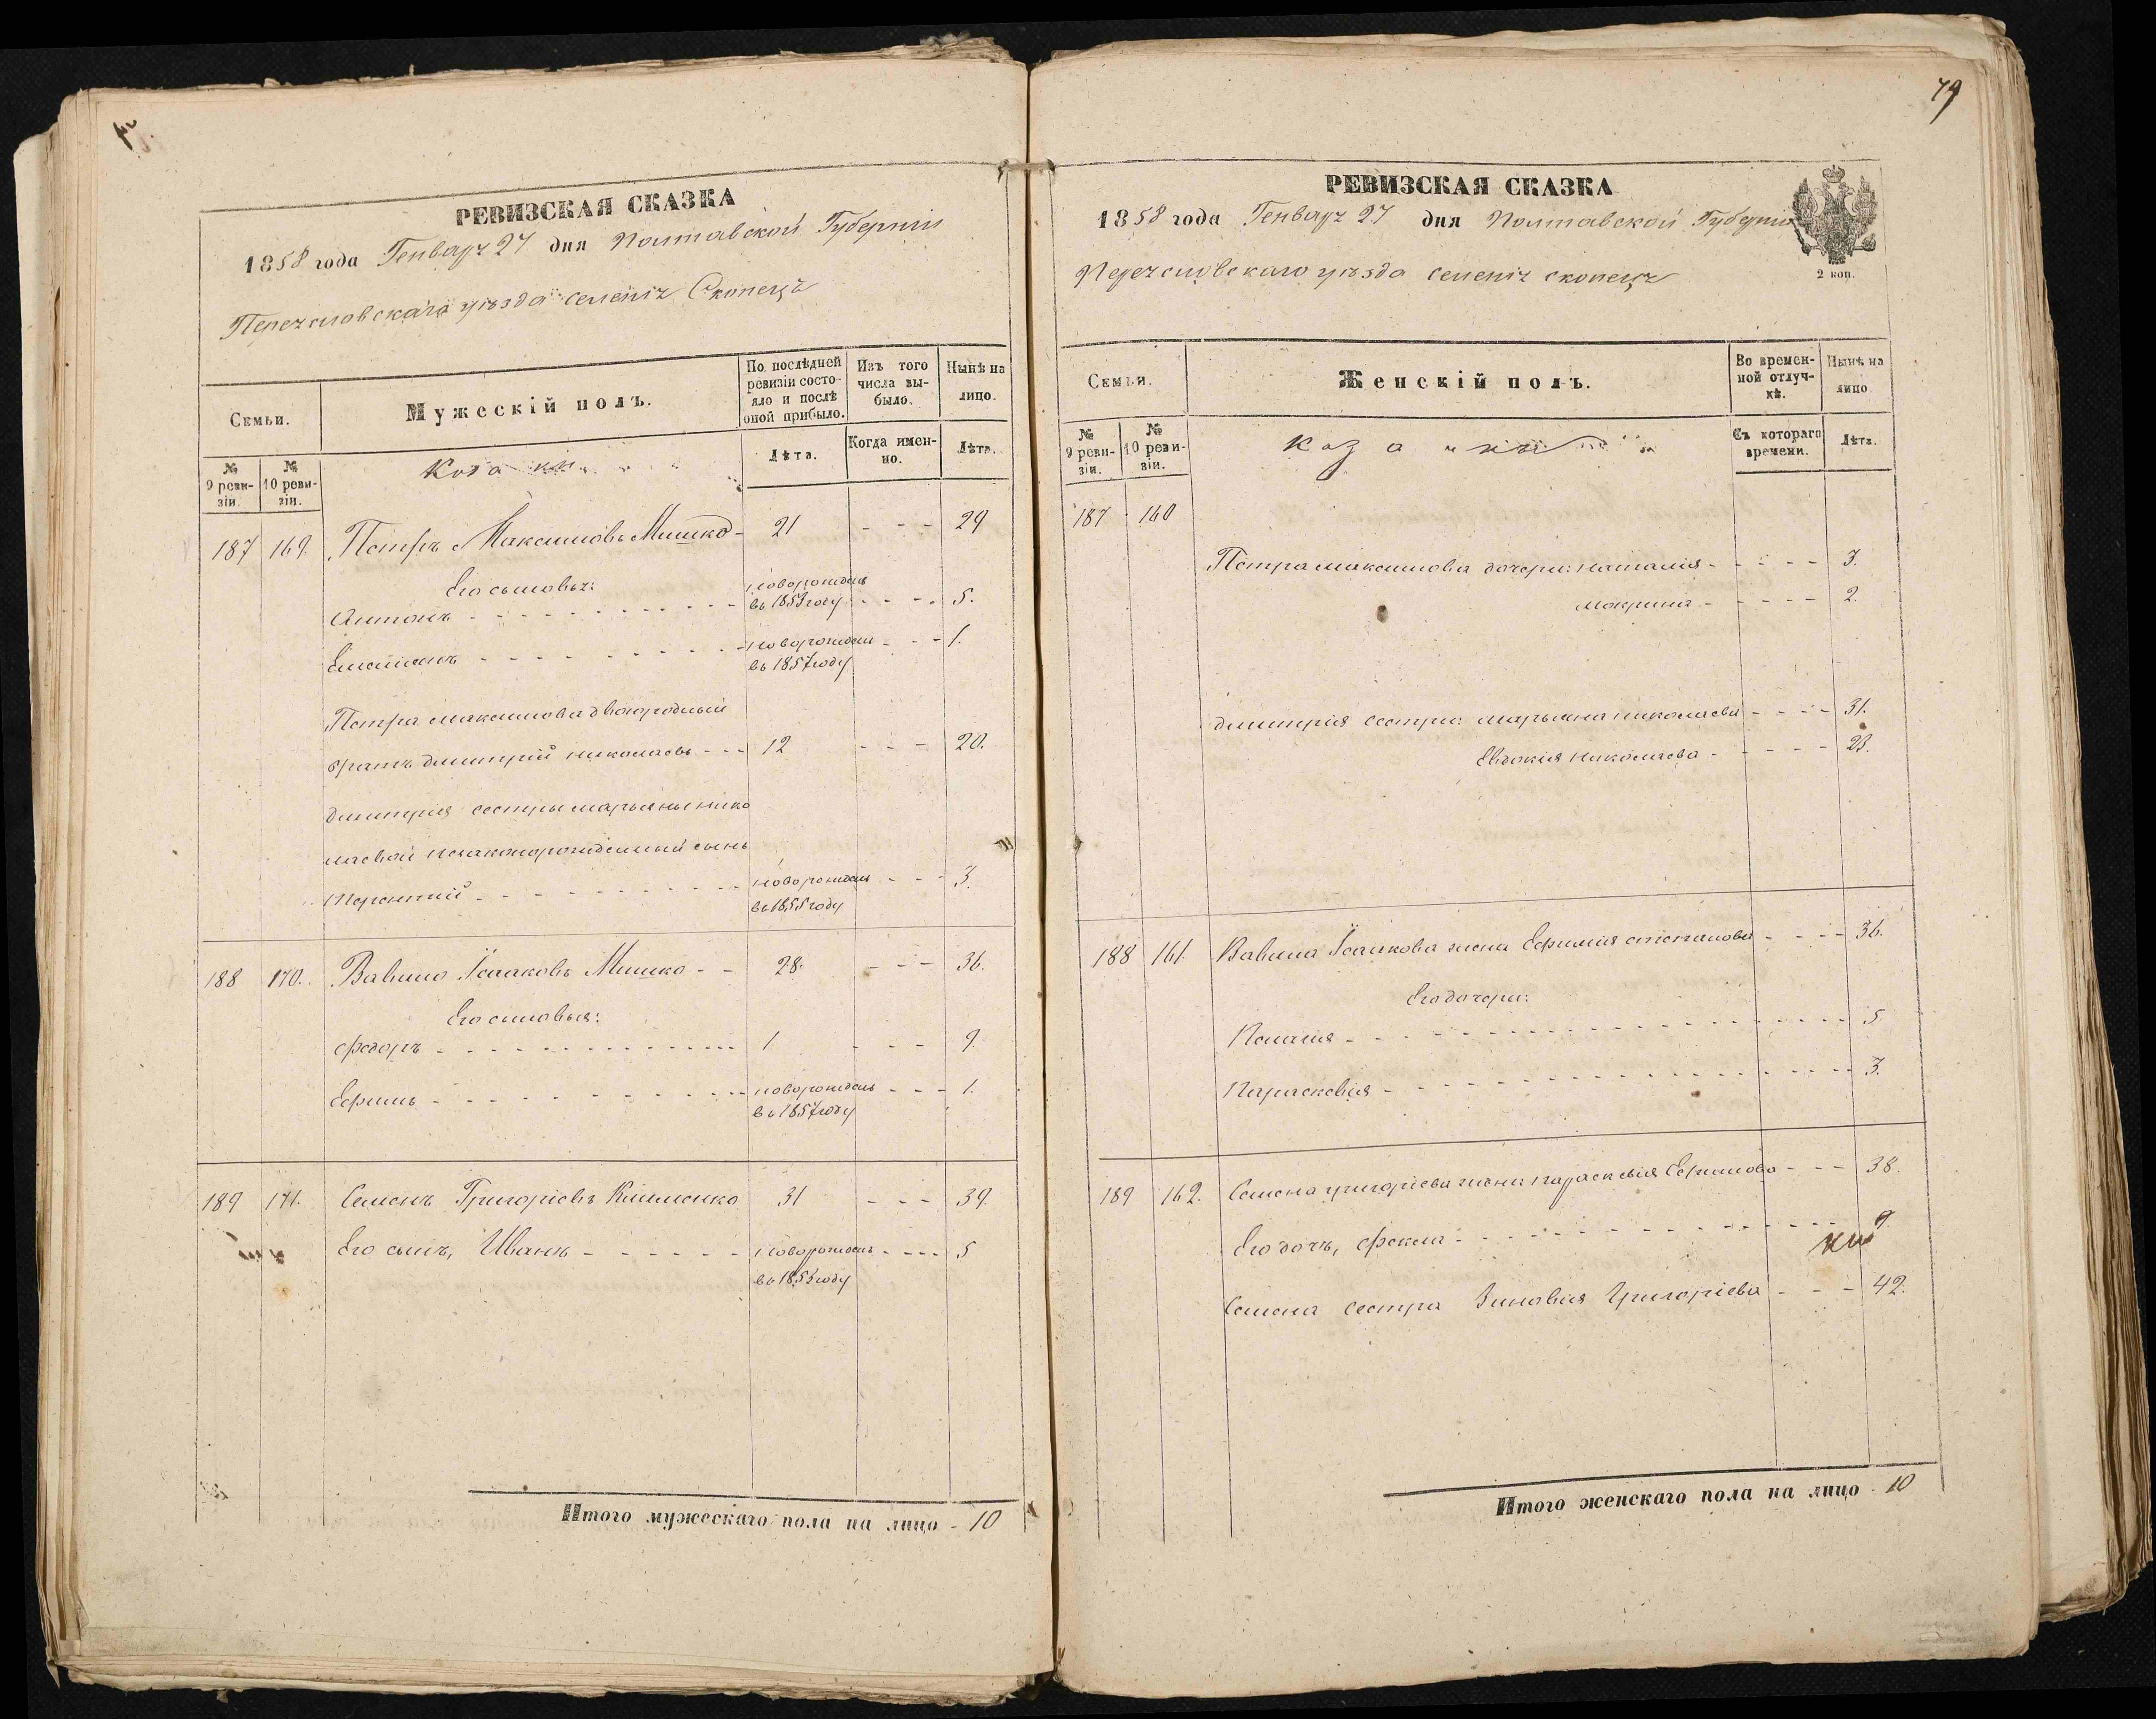 РЕВИЗСКАЯ СКАЗКА
1858 года Генваря 27 дня Полтавской Губерніи
Переяславскаго уѣзда селенія Скопецъ
Семьи.
Мужескій полъ.
По послѣдней ревизіи состояло и послѣ оной прибыло.
Изъ того числа выбыло.
Нынѣ на лицо.
№ 9 ревизіи.
№ 10 ревизіи.
Козаки
Лѣта.
Когда именно.
Лѣта.
187 169. Петръ Максимовъ Мишко - 21 - - - 29
Его сыновья:
Антонъ - - - новорожденъ въ 1853 году - - - 5.
Емелианъ - - - новорожден въ 1857 году - - - 1.
Петра Максимова двоюродный
братъ Димитрій Николаевъ - - - 12 - - - 20.
Димитрія сестры Марьяны Нико
лаевой незаконорожденный сынъ
Терентій - - - новорожденъ въ 1855 году - - - 3.
188 170. Вавило Ісааковъ Мишко - - 28 - - - 36.
Его сыновья:
Федоръ - - - 1 - - - 9
Ефимъ - - - новорожденъ въ 1857 году - - - 1.
189 171. Семенъ Григоріевъ Клименко 31 - - - 39.
Его сынъ, Иванъ - - - новорожденъ въ 1853 году - - - 5
Итого мужескаго пола на лицо - 10
79
РЕВИЗСКАЯ СКАЗКА
1858 года Генваря 27 дня Полтавской Губерніи
2 коп.
Переяславскаго уѣзда селенія Скопецъ
Семьи.
Женскій полъ.
Во временной отлучкѣ.
Нынѣ на лицо.
№ 9 ревизіи.
№ 10 ревизіи.
Козачки
Съ котораго времени.
Лѣта.
187 160
Петра Максимова дочери: Наталия - - - 3.
Макрина - - - 2.
Димитрія сестры: Марьяна Николаева - - - 31.
Евдокия Николаева - - - 23.
188 161. Вавила Ісаакова жена Ефимия Степанова - - - 36.
Его дочери:
Пелагия - - - 5
Парасковия - - - 3.
189 162. Семена Григоріева жена Параскевия Ефимова - - - 38.
Его дочь, Фекла - - - 9.
Семена сестра Зиновия Григоріева - - - 42.
Итого женскаго пола на лицо 10